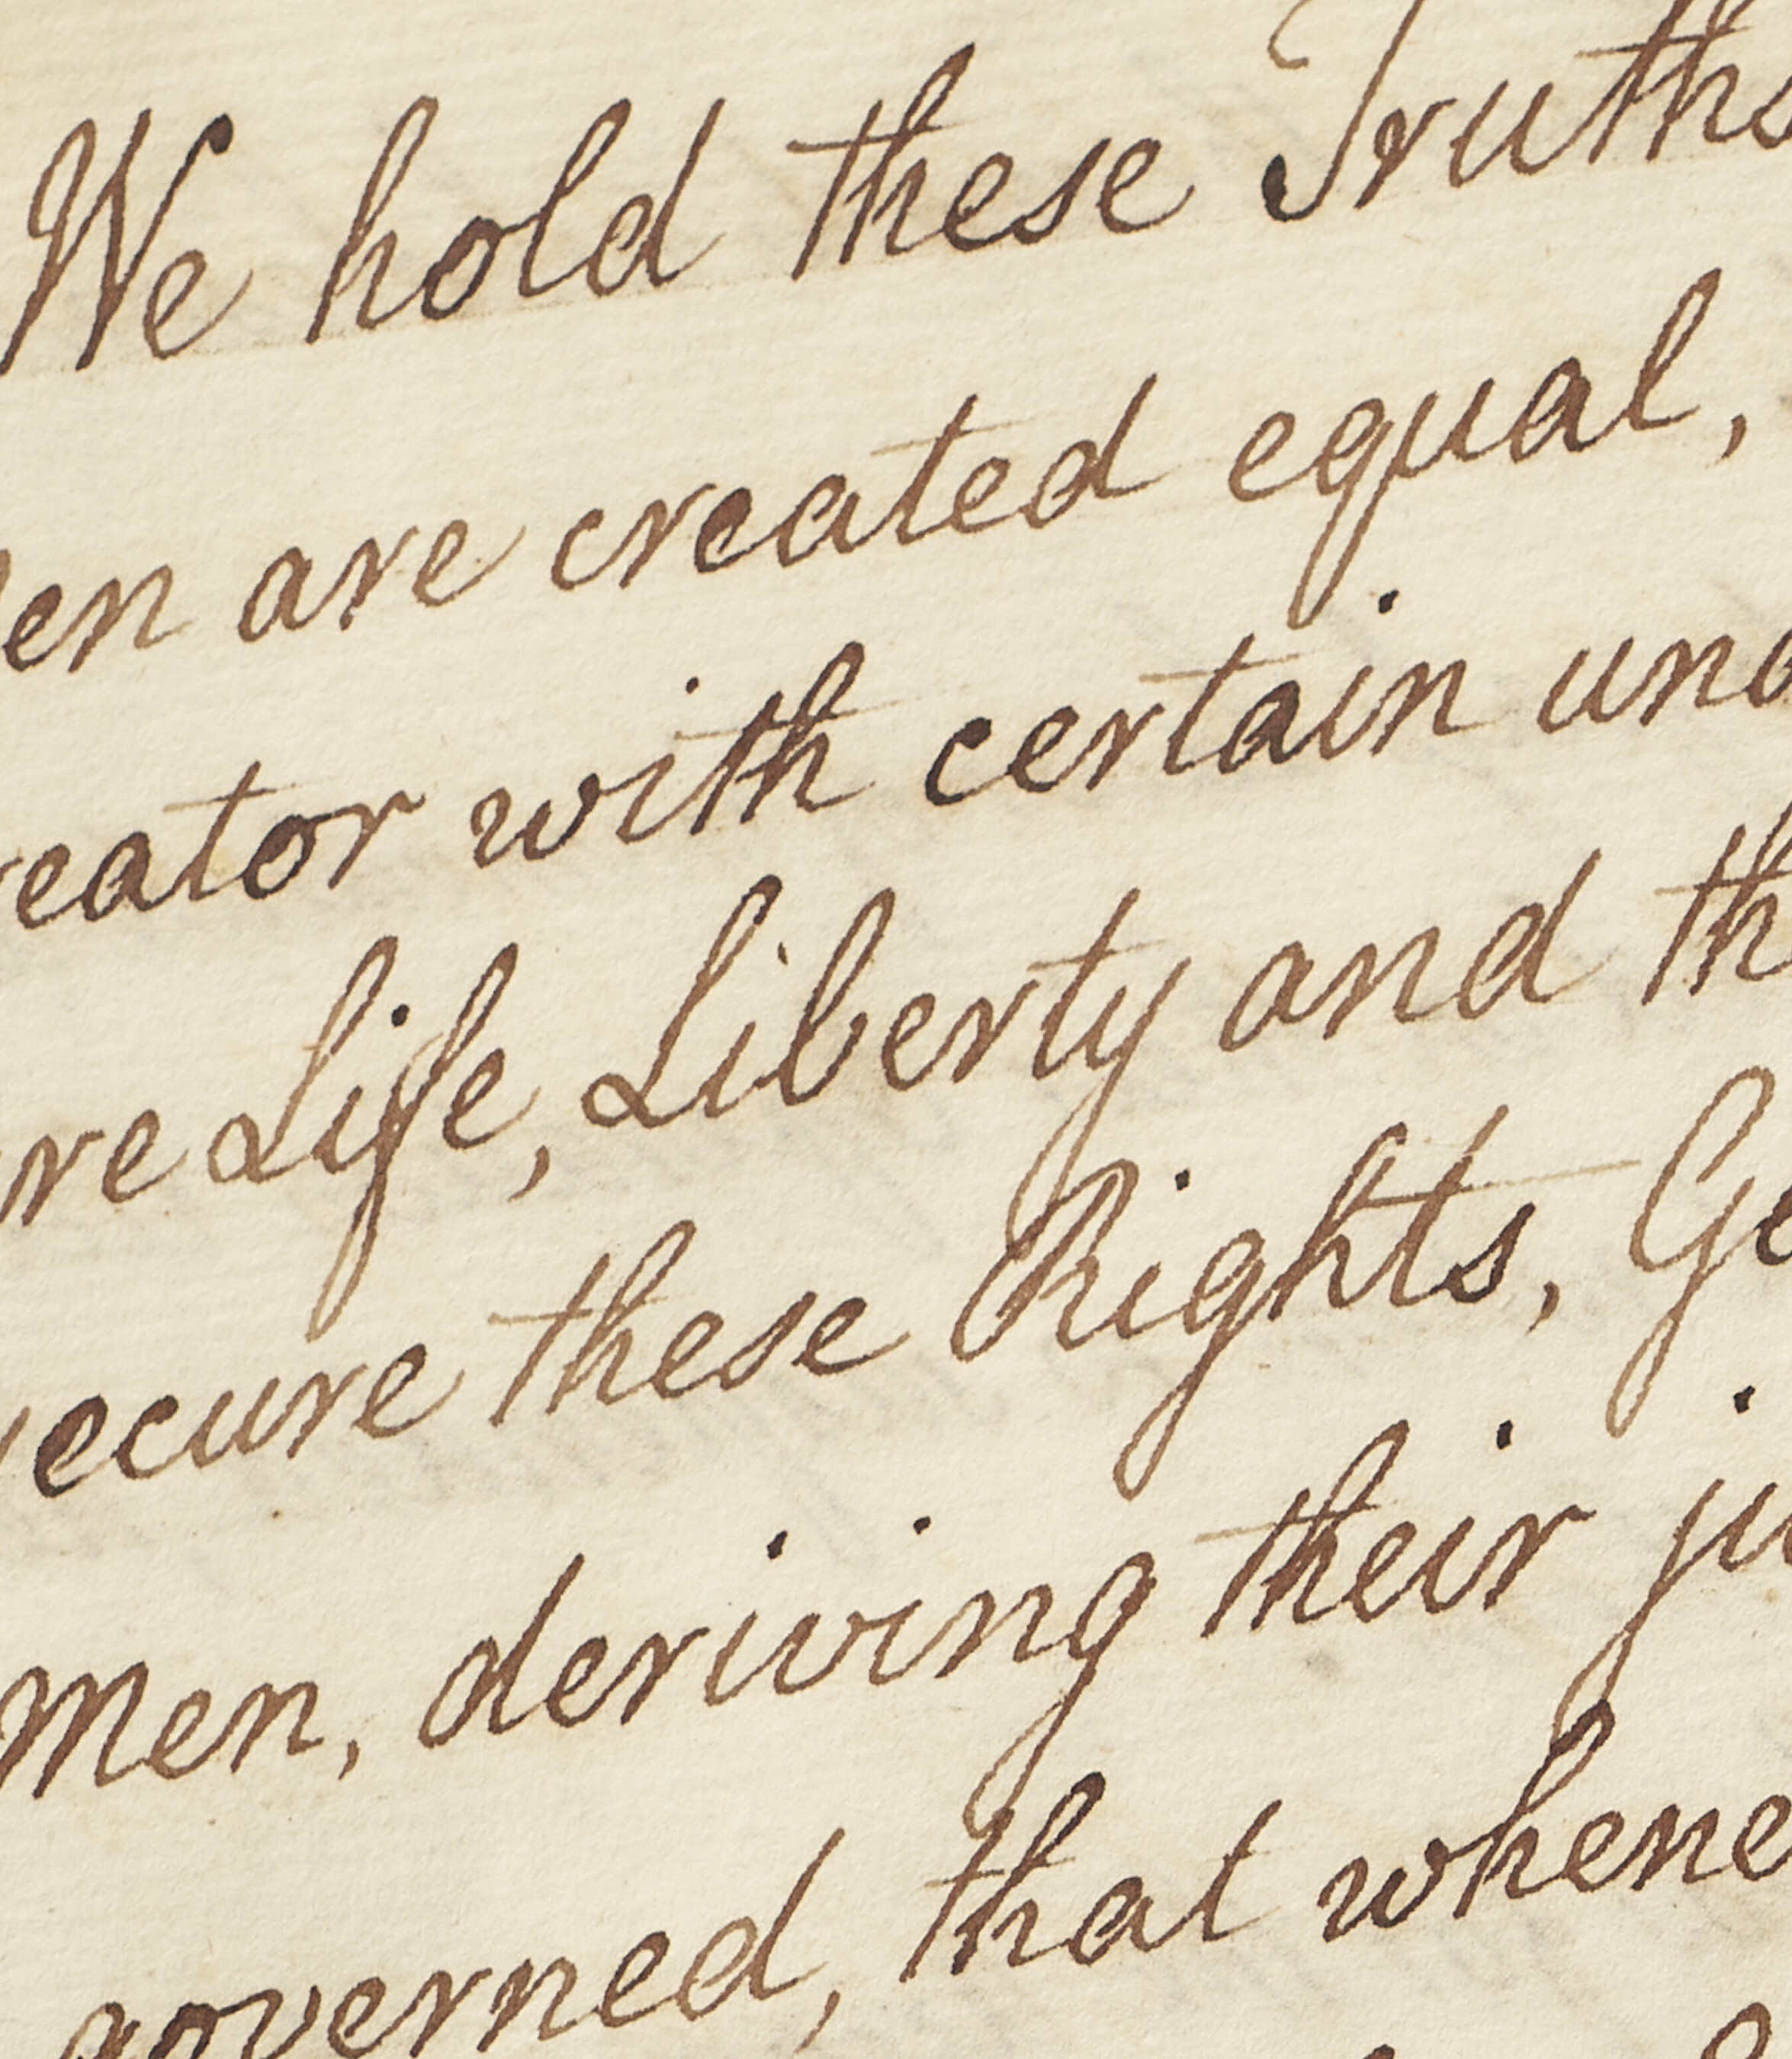 We hold these Truths
en are created equal,
eator with certain una
re Life, Liberty and th
ecure these Rights, Go
Men, deriving their ju
governed, that whene